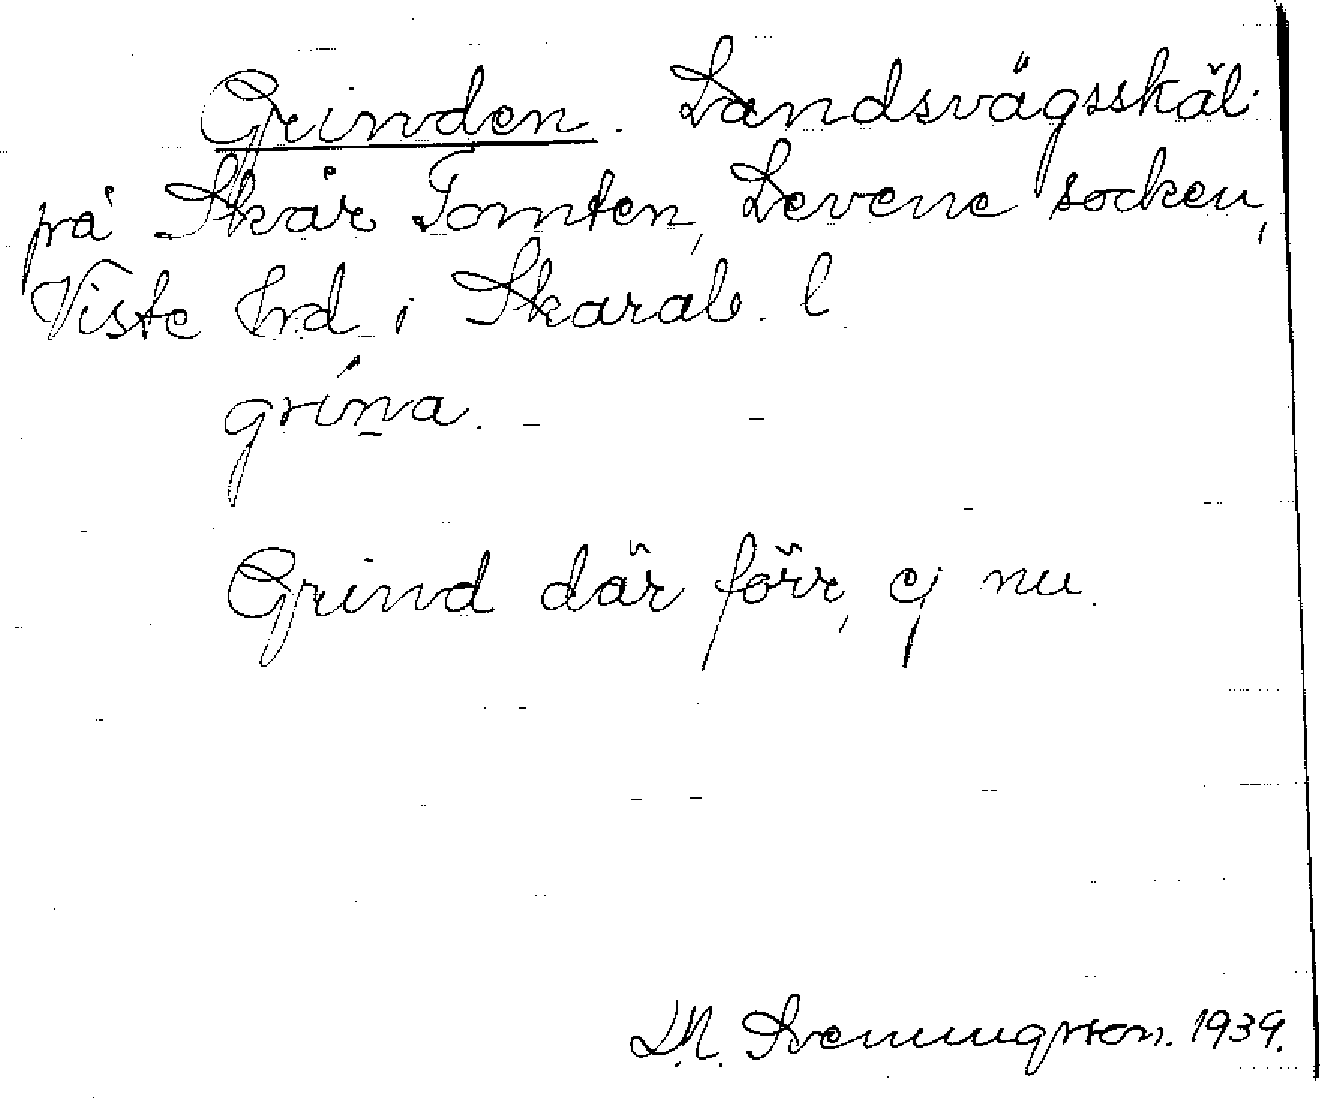 Grinden. Landsvägsskäl
på Skår Tomten, Levene socken,
Viste hrd i Skarab. l
grína.
Grind där förr, ej nu.
D.N. Svenungsson. 1939.